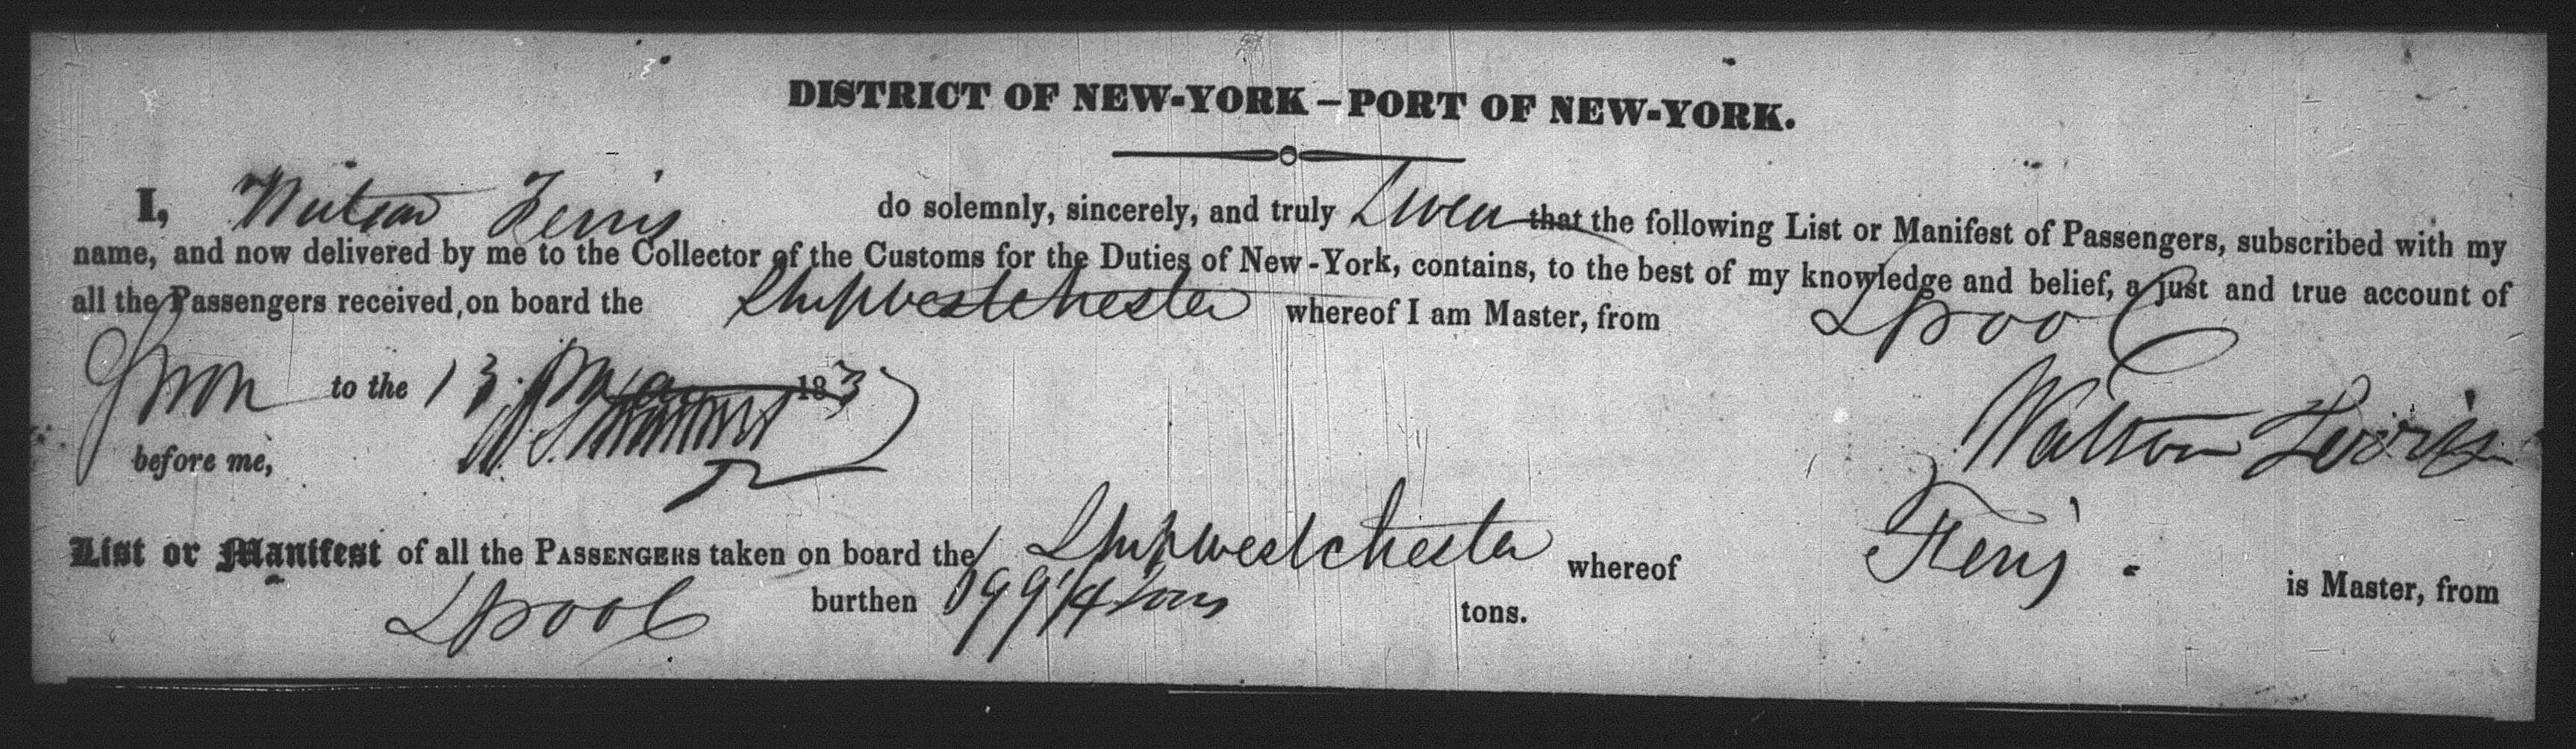 DISTRICT OF NEW-YORK – PORT OF NEW-YORK.
I, Watson Ferris do solemnly, sincerely, and truly Swear that the following List or Manifest of Passengers, subscribed with my
name, and now delivered by me to the Collector of the Customs for the Duties of New-York, contains, to the best of my knowledge and belief, a just and true account of
all the Passengers received on board the Ship Westchester whereof I am Master, from Lpool
to the 13 183
before me,
Watson Ferris
List or Manifest of all the PASSENGERS taken on board the Ship Westchester whereof Ferris is Master, from
Lpool burthen tons tons.